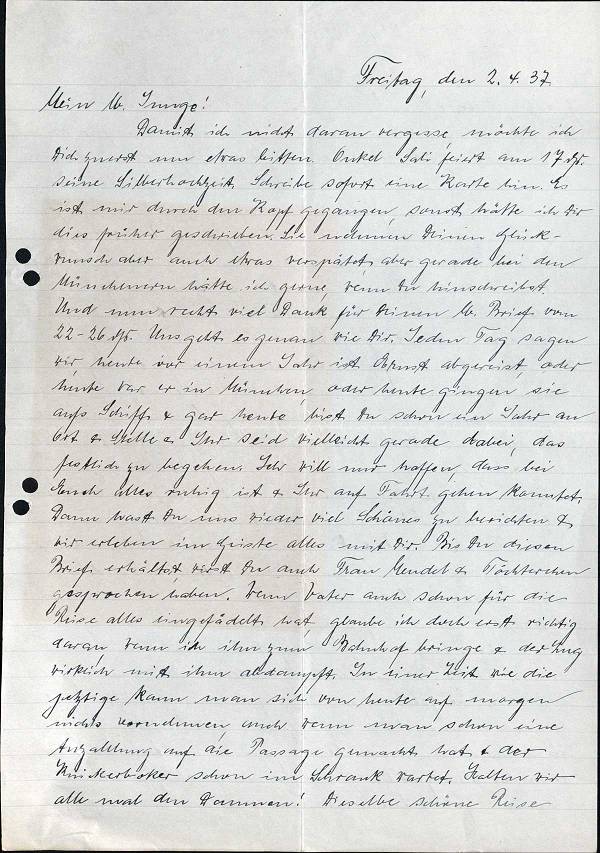 Freitag, den 2.4.37.
Mein lb. Junge!
Damit ich nicht daran vergesse, möchte ich
Dich zuerst um etwas bitten. Onkel Sali feiert am 17. ds.
seine Silberhochzeit. Schreibe sofort eine Karte hin. Es
ist mir durch den Kopf gegangen, sonst hätte ich Dir
dies früher geschrieben. Sie nehmen Deinen Glück-
wunsch aber auch etwas verspätet, aber gerade bei den
Münchenern hätte ich gerne, wenn Du hinschreibst.
Und nun recht viel Dank für Deinen lb. Brief vom
22-26 ds. Uns geht es genau wie Dir. Jeden Tag sagen
wir, heute vor einem Jahr ist Ernst abgereist, oder
heute war er in München, oder heute gingen sie
aufs Schiff & gar heute bist Du schon ein Jahr an
Ort & Stelle & Ihr seid vielleicht gerade dabei, das
festlich zu begehen. Ich will nur hoffen, dass bei
Euch alles ruhig ist & Ihr auf Fahrt gehen konntet.
Dann hast Du uns wieder viel Schönes zu berichten &
wir erleben im Geiste alles mit Dir. Bis Du diesen
Brief erhältst, wirst Du auch Frau Mendel & Töchterchen
gesprochen haben. Wenn Vater auch schon für die
Reise alles eingefädelt hat, glaube ich doch erst richtig
daran wenn ich ihn zum Bahnhof bringe & der Zug
wirklich mit ihm abdampft. In einer Zeit wie die
jetztige kann man sich von heute auf morgen
nichts vornehmen, auch wenn man schon eine
Anzahlung auf die Passage gemacht hat & der
Knickerboker schon im Schrank wartet. Halten wir
alle mal den Daumen! Dieselbe schöne Reise